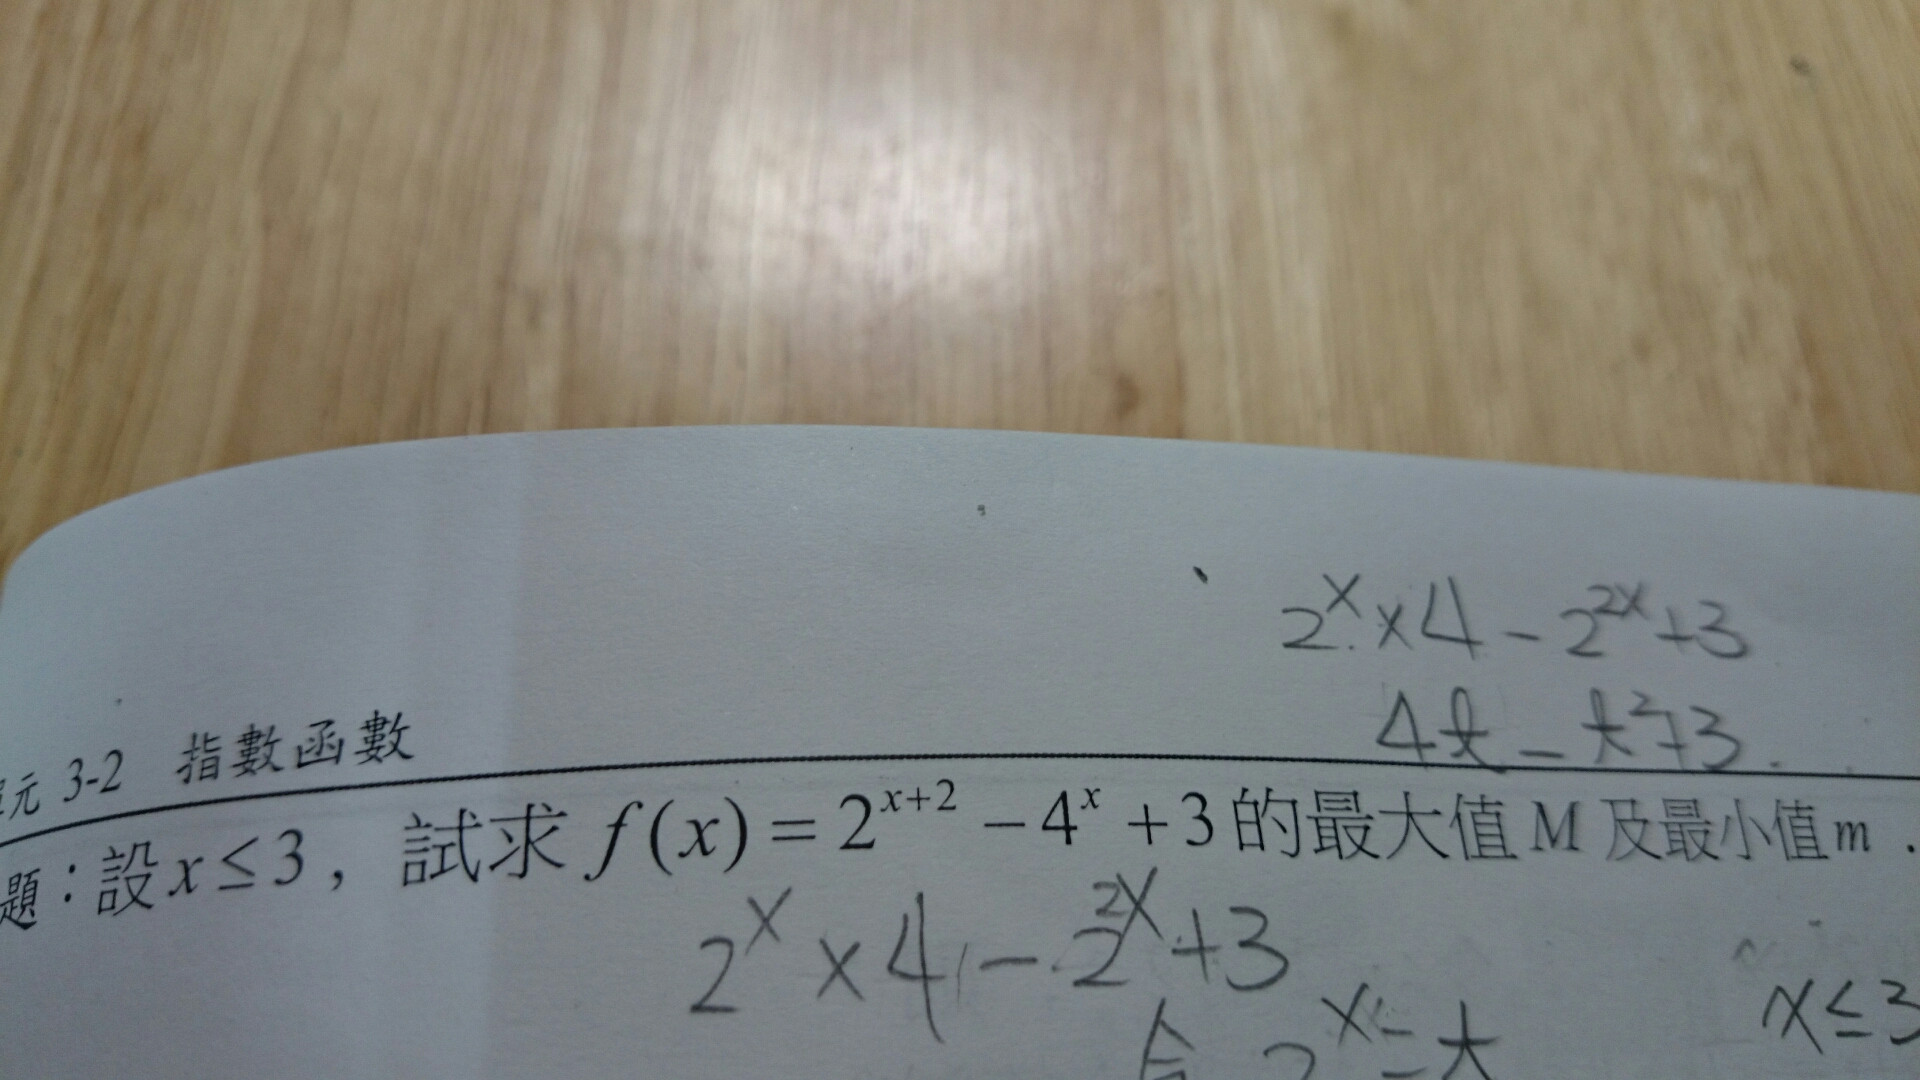 2ˣ×4-2²ˣ+3
4t-t²+3.
單元 3-2 指數函數
題：設x≤3，試求f(x)=2ˣ⁺²-4ˣ+3的最大值M及最小值m．
2ˣ×4-2²ˣ+3
x≤3
令2ˣ=t